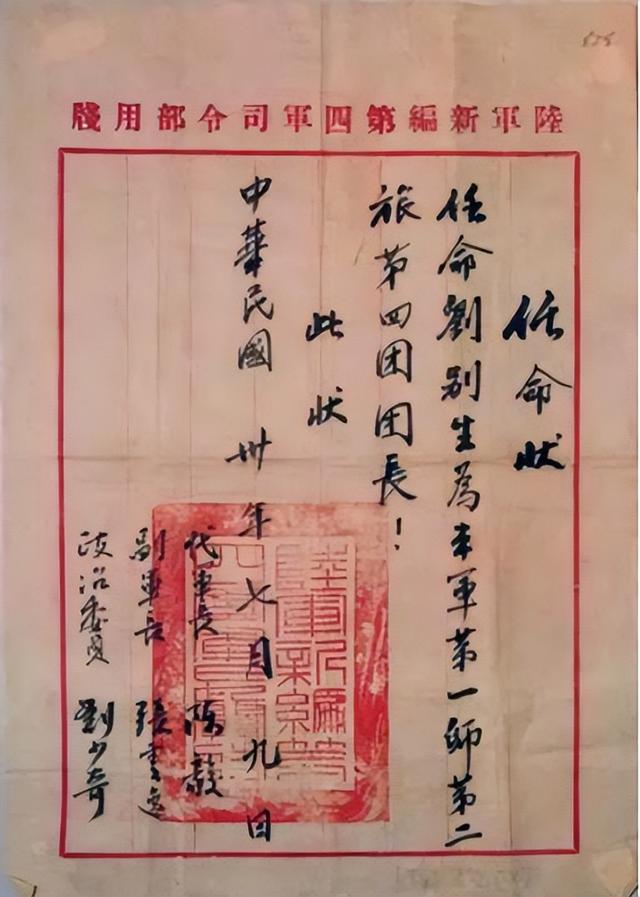 陸軍新編第四軍司令部用牋
任命状
任命劉别生為本軍第一師第二
旅第四团团長！
此状
中華民國卅年七月九日
代軍長 陳毅
副軍長 張雲逸
政治委員 劉少奇